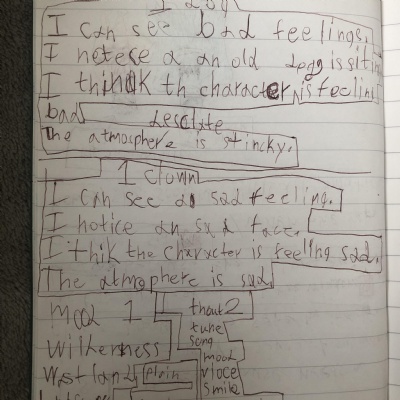 I can see bad feelings.
I notece a an old legg is sittin
I thinok th character is feeling
bad desolate
The atmosphere is stincky.
1 clown
I can see a sad feeling.
I notice an sad face.
I thik the character is feeling sad.
The atmosphere is sad.
mood 1
thout 2
tune
song
Wilkerness
mood
Wastland plain
vioce
smile